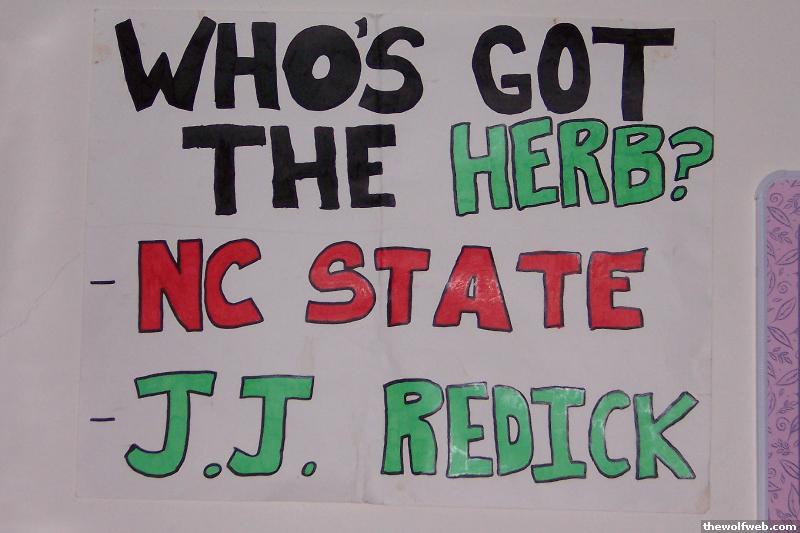 WHO'S GOT
THE HERB?
- NC STATE
- J.J. REDICK
thewolfweb.com